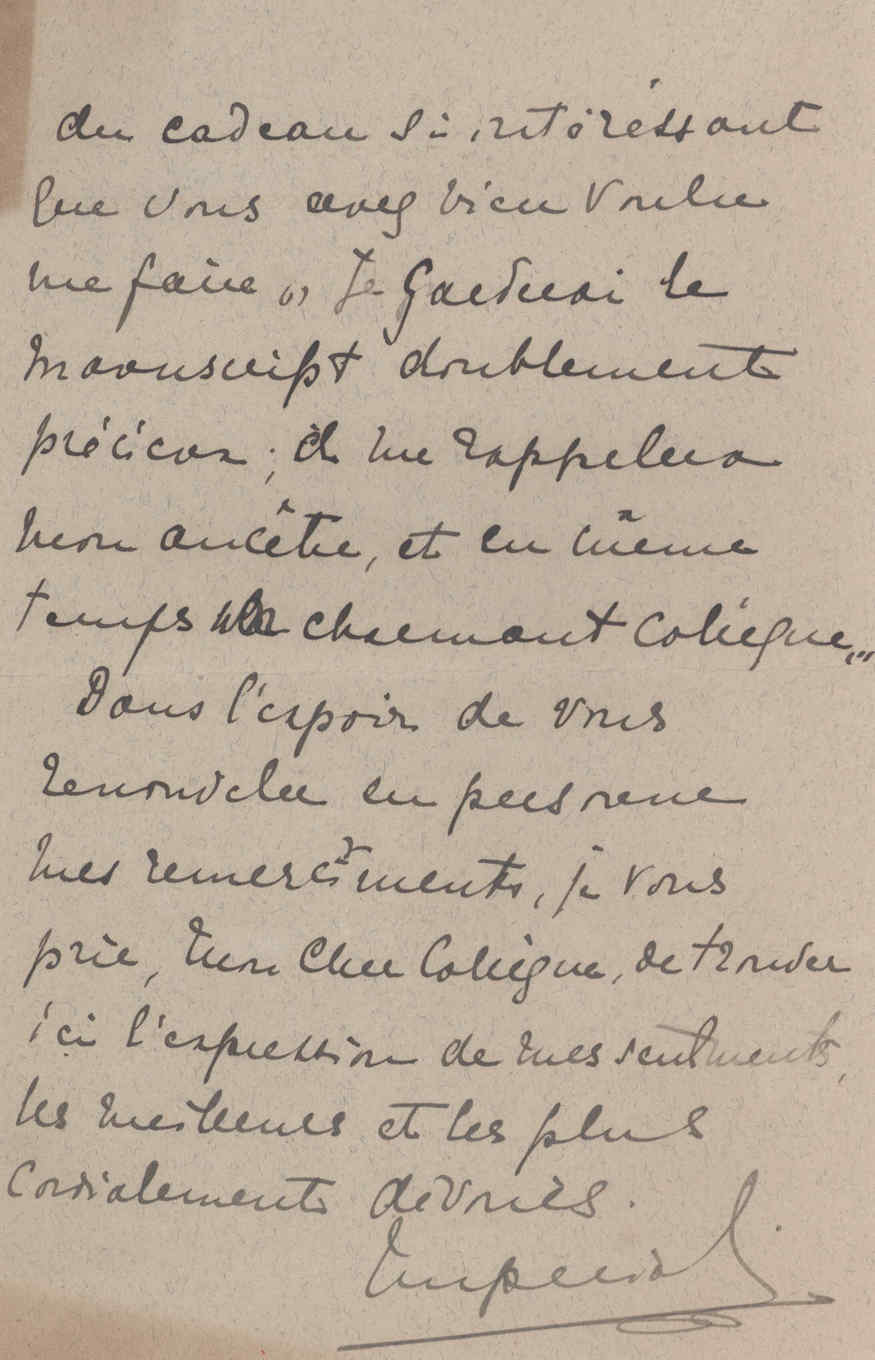 du cadeau si intéressant
que vous avez bien voulu
me faire „ Je garderai le
manuscript doublement
précieux ; il me rappelera
mon ancêtre, et en même
temps un charmant collègue „
Dans l'espoir de vous
renouveler en personne
mes remercîments, je vous
prie, mon cher Collègue, de trouver
ici l'expression de mes sentiments,
les meilleurs et les plus
cordialement dévoués.
Imperiali